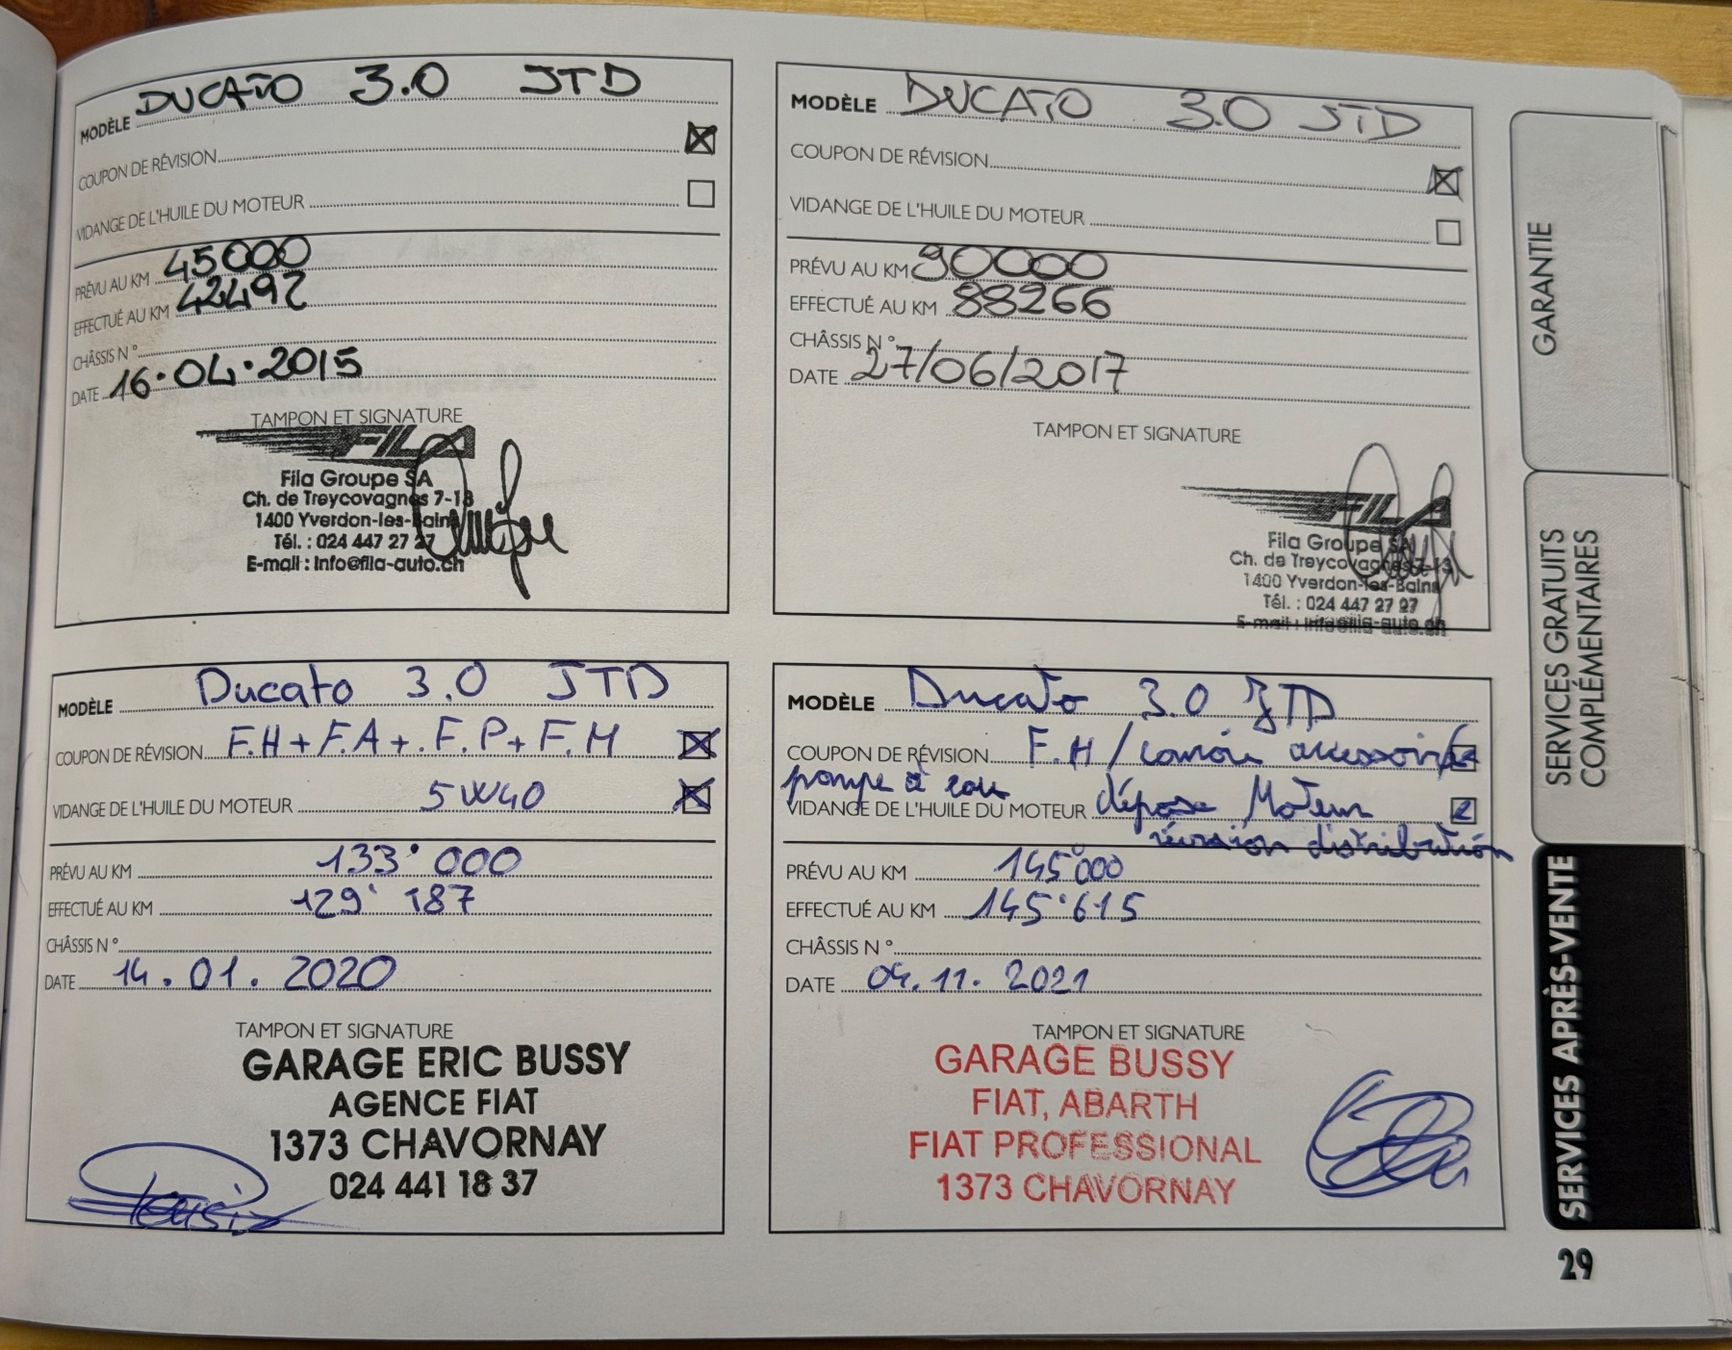 MODÈLE DUCATO 3.0 JTD
COUPON DE RÉVISION
VIDANGE DE L'HUILE DU MOTEUR
PRÉVU AU KM 45000
EFFECTUÉ AU KM 42492
CHÂSSIS N°
DATE 16.04.2015
TAMPON ET SIGNATURE
FILA
Fila Groupe SA
Ch. de Treycovagnes 7-13
1400 Yverdon-les-Bains
Tél. : 024 447 27 27
E-mail : info@fila-auto.ch
MODÈLE DUCATO 3.0 JTD
COUPON DE RÉVISION
VIDANGE DE L'HUILE DU MOTEUR
PRÉVU AU KM 90000
EFFECTUÉ AU KM 88266
CHÂSSIS N°
DATE 27/06/2017
TAMPON ET SIGNATURE
FILA
Fila Groupe SA
Ch. de Treycovagnes 7-13
1400 Yverdon-les-Bains
Tél. : 024 447 27 27
E-mail : info@fila-auto.ch
MODÈLE Ducato 3.0 JTD
COUPON DE RÉVISION F.H + F.A + . F.P + F.H
VIDANGE DE L'HUILE DU MOTEUR 5W40
PRÉVU AU KM 133'000
EFFECTUÉ AU KM 129'187
CHÂSSIS N°
DATE 14.01.2020
TAMPON ET SIGNATURE
GARAGE ERIC BUSSY
AGENCE FIAT
1373 CHAVORNAY
024 441 18 37
MODÈLE Ducato 3.0 JTD
COUPON DE RÉVISION F.H / accessoires
pompe à eau
VIDANGE DE L'HUILE DU MOTEUR dépose Moteur
révision distribution
PRÉVU AU KM 145'000
EFFECTUÉ AU KM 145'615
CHÂSSIS N°
DATE 04.11.2021
TAMPON ET SIGNATURE
GARAGE BUSSY
FIAT, ABARTH
FIAT PROFESSIONAL
1373 CHAVORNAY
GARANTIE
SERVICES GRATUITS
COMPLÉMENTAIRES
SERVICES APRÈS-VENTE
29